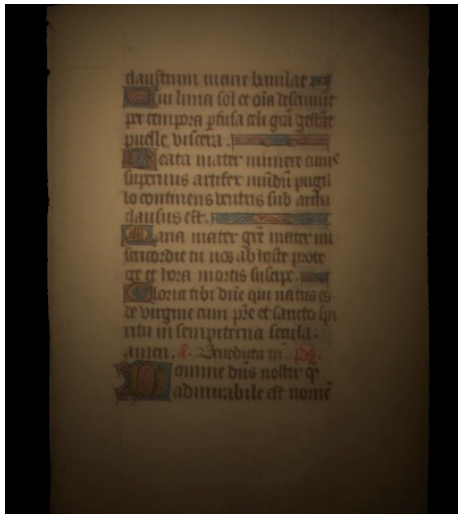 claustrum marie baiulat
Cui luna sol et oīa deserviūt
per tempora pfusa celi grā gestāt
puelle viscera.
Beata mater munere cuius
supernus artifex mūdū pugil
lo continens ventris sub archa
clausus est.
Maria mater grē mater mi
sericordie tu nos ab hoste prote
ge et hora mortis suscipe.
Gloria tibi dn̄e qui natus es
de virgine cum p̄re et sancto spi
ritu in sempiterna secula.
amen. a. Benedicta tu. ps.
Domine dn̄s noster q̄
admirabile est nomē